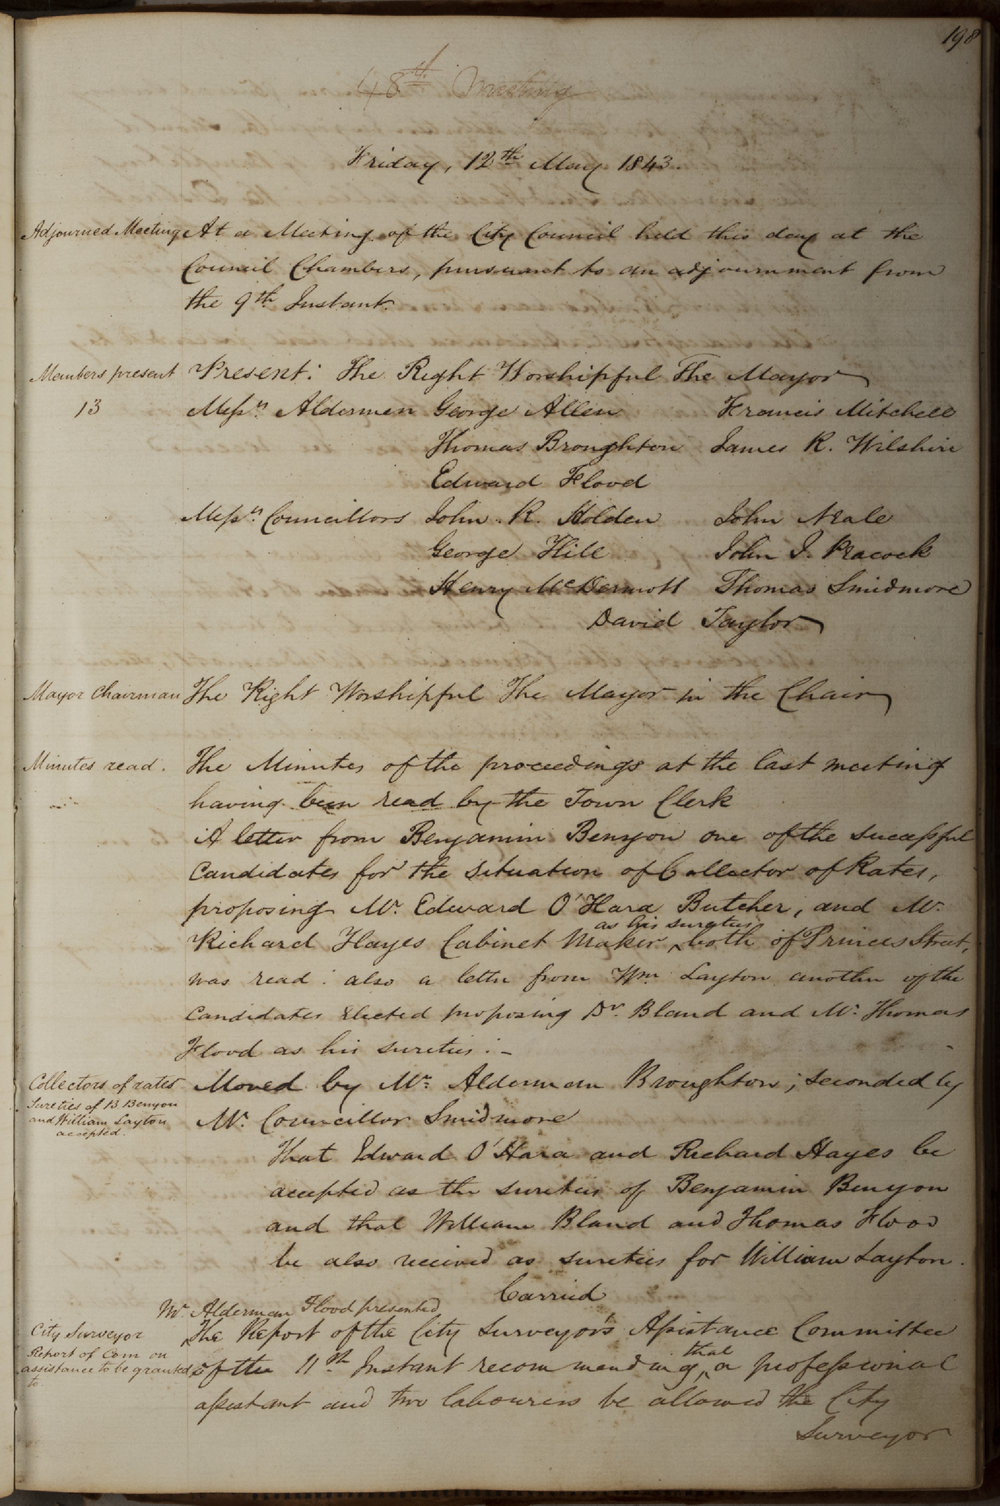 198
48th Meeting
Friday, 12th May 1843.
Adjourned Meeting
At a Meeting of the City Council held this day at the
Council Chambers, pursuant to an adjournment from
the 9th Instant.
Members present
13
Present: The Right Worshipful The Mayor
Messrs Aldermen George Allen Francis Mitchell
Thomas Broughton James R. Wilshire
Edward Flood
Messrs Councillors John R. Holden John Neale
George Hill John J. Peacock
Henry McDermott Thomas Smidmore
David Taylor
Mayor Chairman
The Right Worshipful The Mayor in the Chair
Minutes read.
The Minutes of the proceedings at the last meeting
having been read by the Town Clerk
A letter from Benjamin Benyon one of the successful
Candidates for the situation of Collector of Rates,
proposing Mr. Edward O'Hara Butcher, and Mr.
as his sureties
Richard Hayes Cabinet Maker, both of Princes Street,
was read: also a letter from Wm. Layton another of the
Candidates elected proposing Dr. Bland and Mr. Thomas
Flood as his sureties:-
Collectors of rates
Sureties of B Benyon
and William Layton
accepted.
Moved by Mr. Alderman Broughton; seconded by
Mr. Councillor Smidmore
That Edward O'Hara and Richard Hayes be
accepted as the sureties of Benjamin Benyon
and that William Bland and Thomas Flood
be also received as sureties for William Layton.
Carried
Mr. Alderman Flood presented
City Surveyor
Report of Com on
assistance to be granted
to
The Report of the City Surveyor's Assistance Committee
that
of the 11th Instant recommending a professional
assistant and two labourers be allowed the City
Surveyor